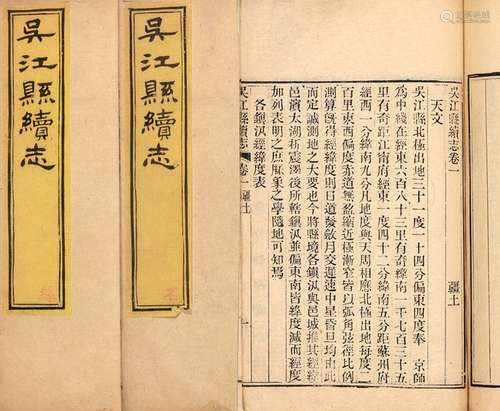 吳江縣續志卷一 疆土
天文
吳江縣北極出地三十一度一十四分偏東四度奉 京師
為中綫在經東六百八十三里有奇緯南一千七百三十五
里有奇距江甯府經東一度四十二分緯南五分距蘇州府
經西一分緯南九分凡地度與天周相應北極出地每度二
百里東西偏度赤道無盈縮近極漸窄皆以弧角弦徑比例
測算旣得經緯度則日道發斂月交遲速中星昏旦均由此
而定誠測地之大要也今將縣境各鎮汛與邑城推其經緯
邑濱太湖折震澤後所轄鎮汛並偏東南皆緯度減而經度
加列表明之庶厤象之學隨地可知焉
各鎮汛經緯度表
吳江縣續志 卷一 疆土
吳江縣續志
吳江縣續志